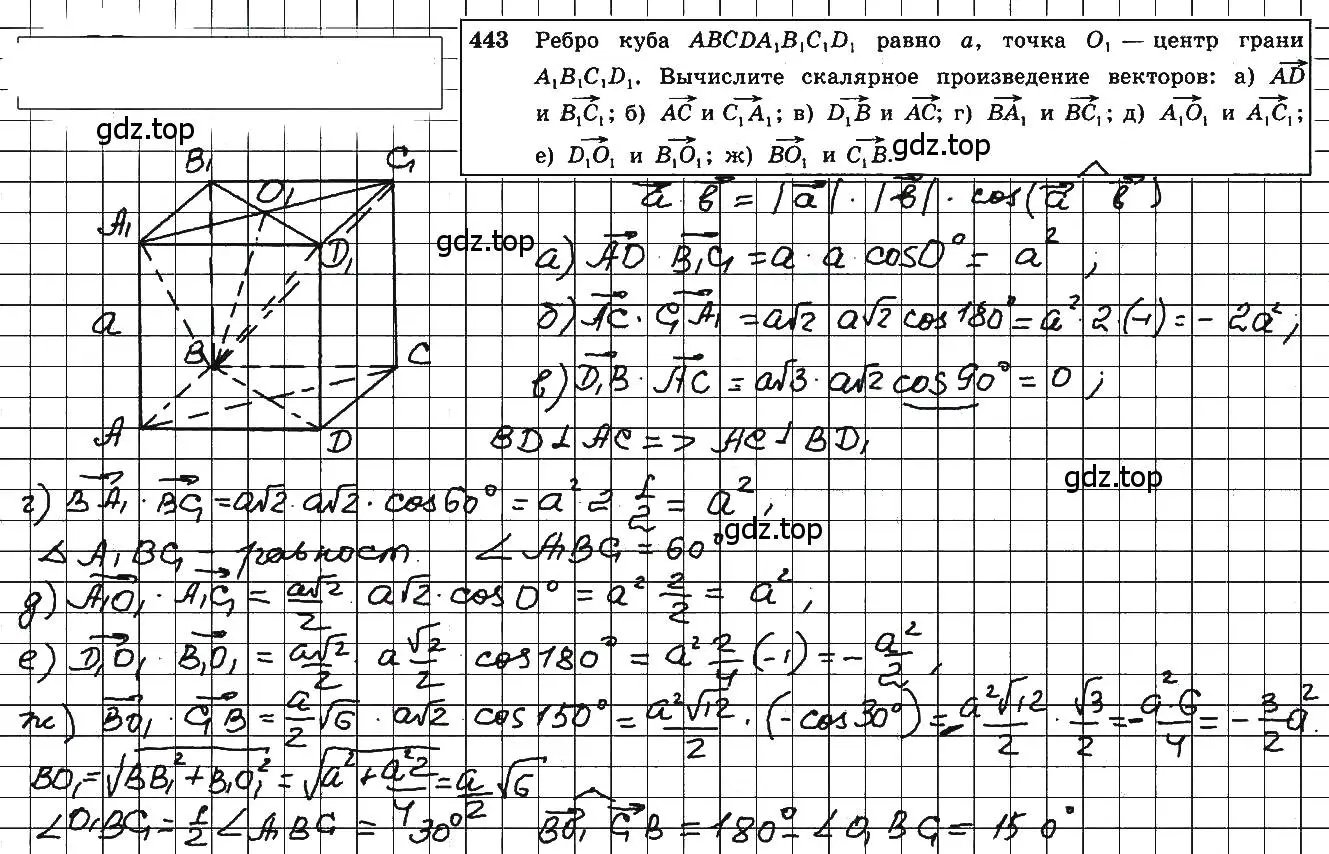 443 Ребро куба ABCDA₁B₁C₁D₁ равно a, точка O₁ — центр грани
A₁B₁C₁D₁. Вычислите скалярное произведение векторов: а) AD
и B₁C₁; б) AC и C₁A₁; в) D₁B и AC; г) BA₁ и BC₁; д) A₁O₁ и A₁C₁;
е) D₁O₁ и B₁O₁; ж) BO₁ и C₁B.
gdz.top
gdz.top
B₁ C₁
O₁
A₁ D₁
a
B C
A D
a · b = |a| · |b| · cos(a b)
gdz.top
а) AD · B₁C₁ = a · a cos0° = a²;
б) AC · C₁A₁ = a√2 a√2 cos180° = a²·2·(-1) = - 2a²;
в) D₁B · AC = a√3 · a√2 cos90° = 0;
BD ⊥ AC => AC ⊥ BD₁
gdz.top
г) BA₁ · BC₁ = a√2 · a√2 · cos60° = a² 2 1/2 = a²;
gdz.top
Δ A₁BC₁ - равност. ∠ A₁BC₁ = 60°
д) A₁O₁ · A₁C₁ = a√2/2 a√2 · cos0° = a² 2/2 = a²;
е) D₁O₁ · B₁O₁ = a√2/2 · a √2/2 cos180° = a² 2/4 (-1) = - a²/2;
ж) BO₁ · C₁B = a/2 √6 · a√2 · cos150° = a²√12/2 · (-cos30°) = - a²√12/2 · √3/2 = - a²·6/4 = - 3/2 a².
BO₁ = √BB₁² + B₁O₁² = √a² + a²2/4 = a/2 √6
∠O₁BC₁ = 1/2 ∠A₁BC₁ = 30° BO₁ C₁B = 180° - ∠O₁BC₁ = 150°